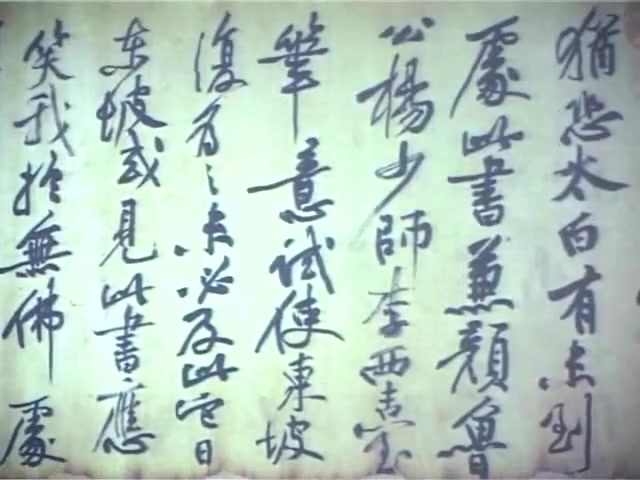 猶恐太白有未到
處此書兼顏魯
公楊少師李西臺
筆意試使東坡
復為之未必及此它日
東坡或見此書應
笑我於無佛處